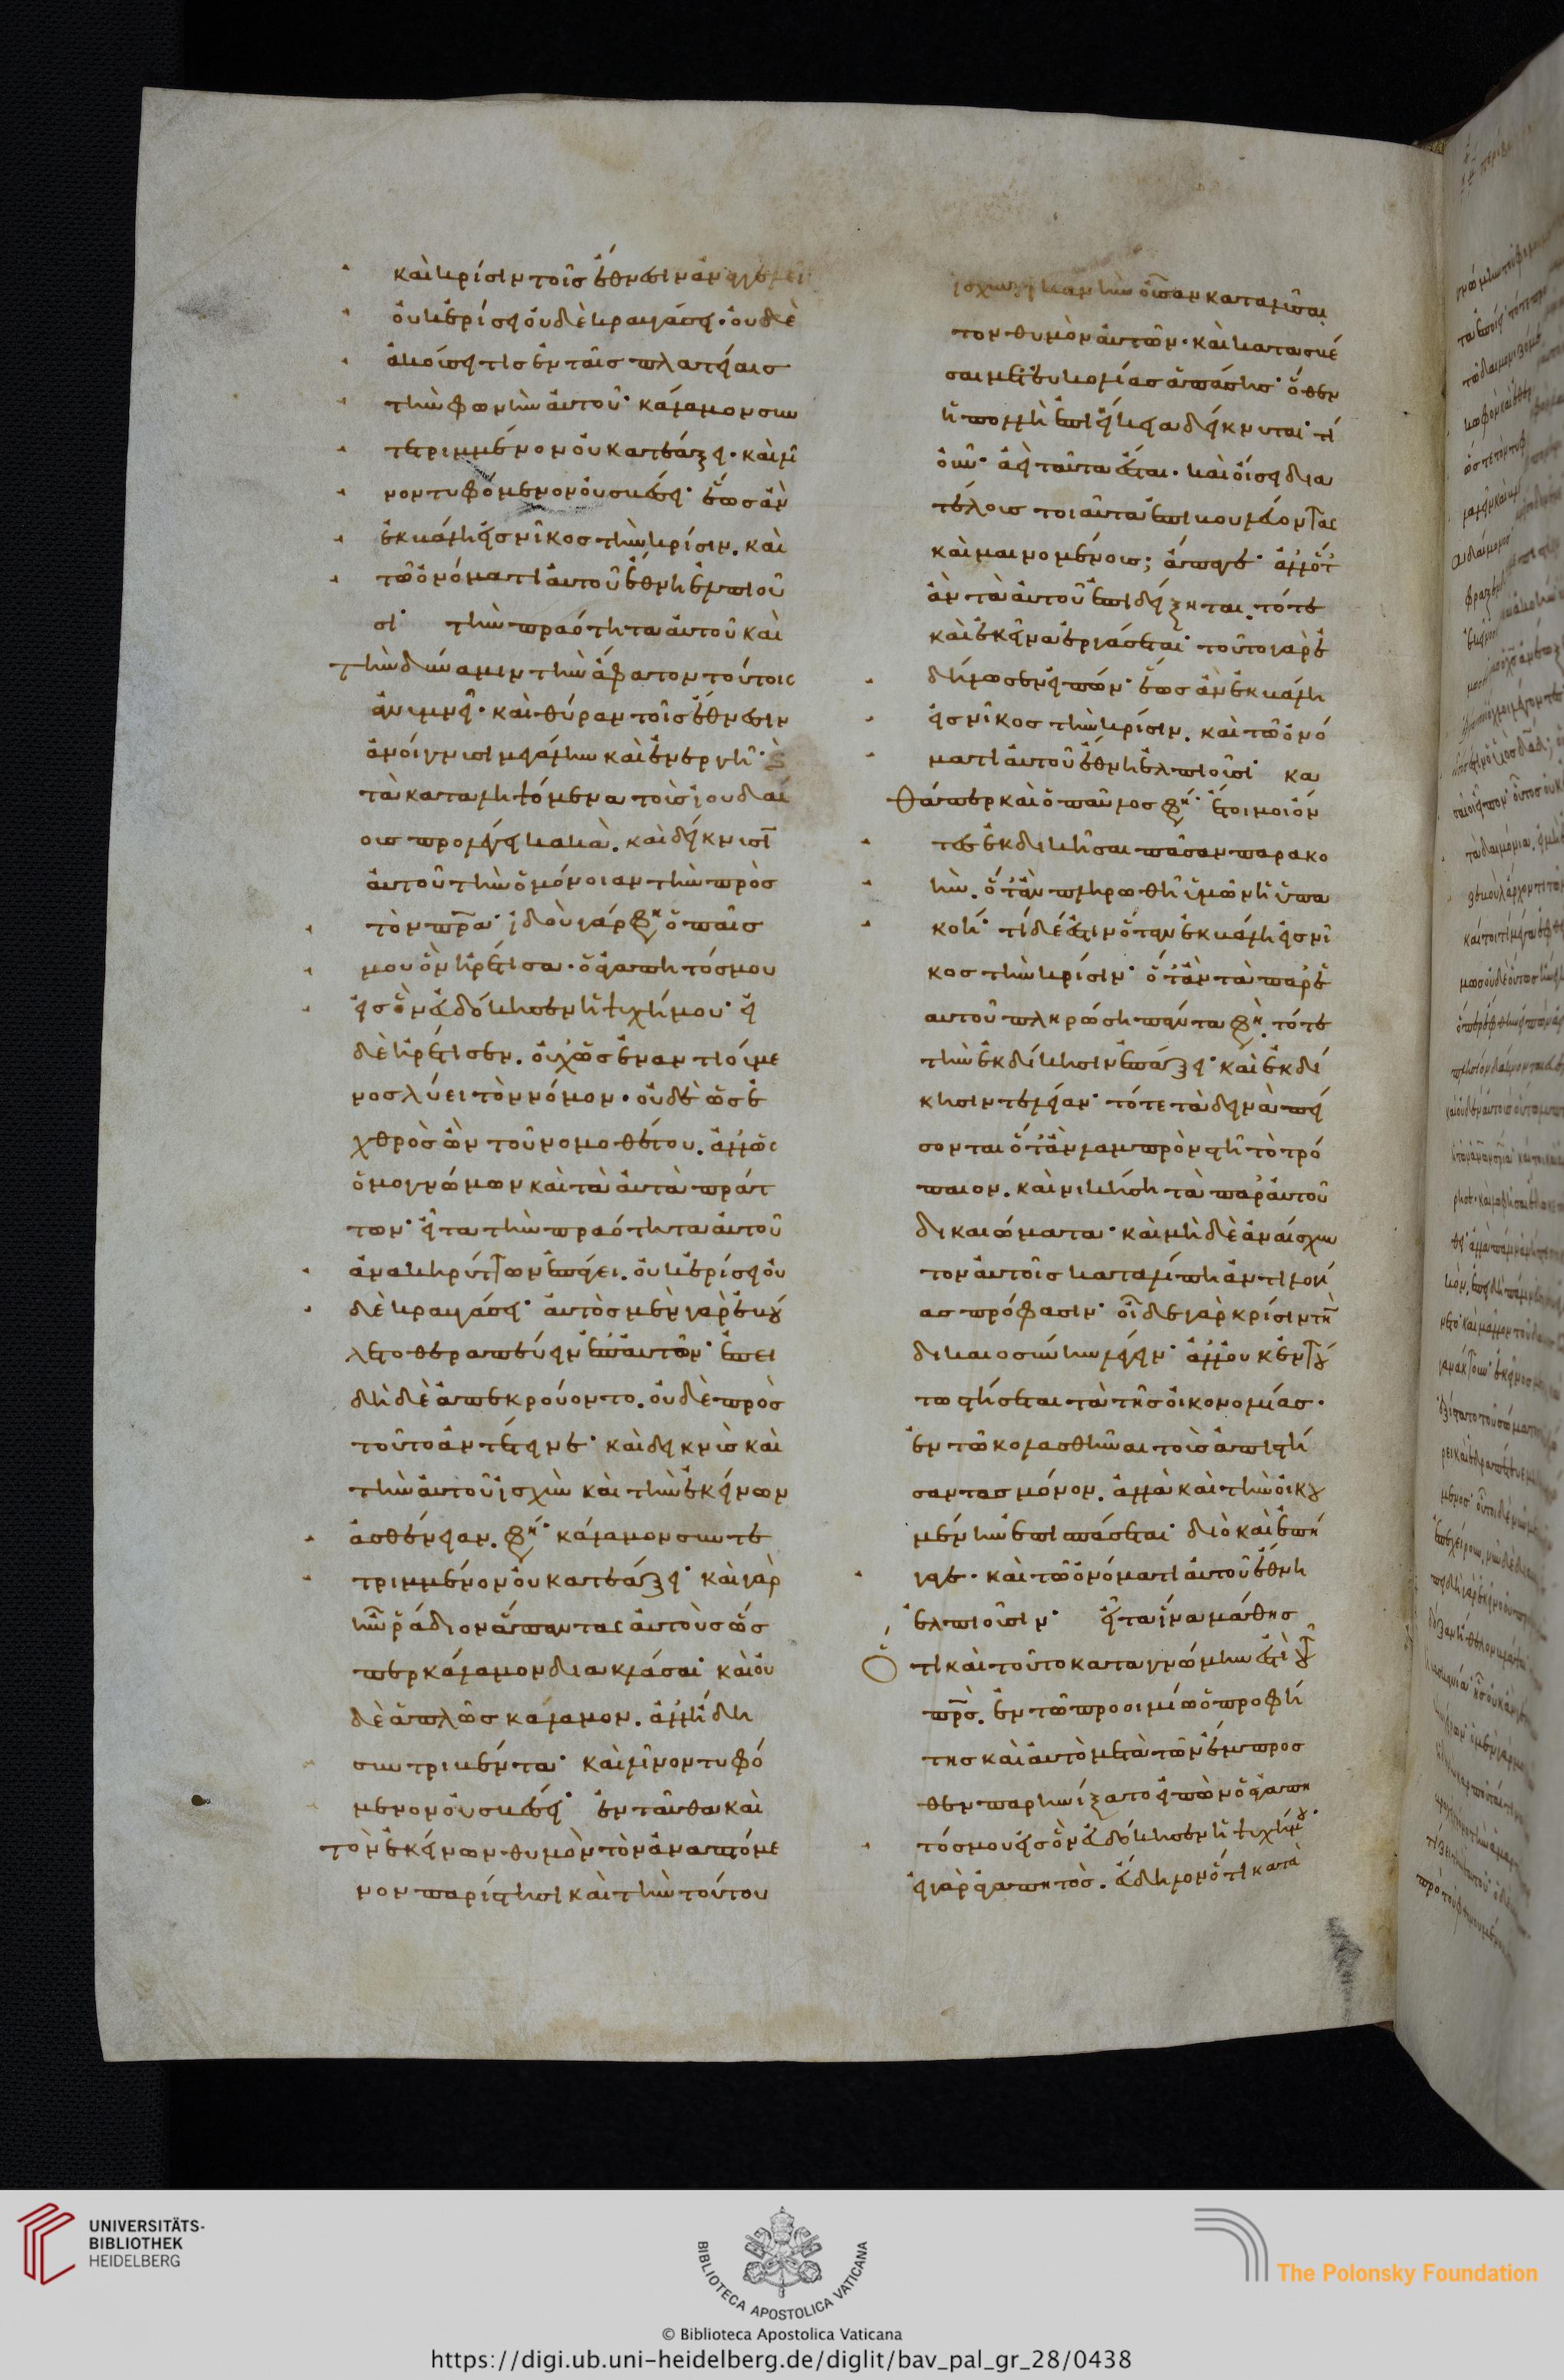 καὶ κρίσιν τοῖς ἔθνεσιν ἀναγγελεῖ
οὐκ ἐρίσει οὐδὲ κραυγάσει· οὐδὲ
ἀκούσει τις ἐν ταῖς πλατείαις
τὴν φωνὴν αὐτοῦ· κάλαμον συν
τετριμμένον οὐ κατεάξει· καὶ λῖ
νον τυφόμενον οὐ σβέσει· ἕως ἂν
ἐκβάλη εἰς νῖκος τὴν κρίσιν. καὶ
τῶ ὀνόματι αὐτοῦ ἔθνη ἐλπιοῦ
σι τὴν πραότητα αὐτοῦ καὶ
τὴν δύναμιν τὴν ἄφατον τούτοις
ἀνυμνεῖ· καὶ θύραν τοῖς ἔθνεσιν
ἀνοίγνυσι μεγάλην καὶ ἐνεργῆ·
τὰ καταληψόμενα τοὺς ἰουδαί
ους προλέγει κακὰ. καὶ δείκνυσι
αὐτοῦ τὴν ὁμόνοιαν τὴν πρὸς
τὸν πρα· ἰδοὺ γάρ φη ὁ παῖς
μου ὃν ἠρέτισα. ὁ ἀγαπητός μου
εἰς ὃν εὐδόκησεν ἡ ψυχή μου· εἰ
δὲ ἠρέτισεν. οὐχ ὡς ἐναντιούμε
νος λύει τὸν νόμον. οὐδὲ ὡς ἐ
χθρὸς ὢν τοῦ νομοθέτου. ἀλλ ὡς
ὁμογνώμων καὶ τὰ αὐτὰ πράτ
των· εἶτα τὴν πραότητα αὐτοῦ
ἀνακηρύττων ἐπάγει. οὐκ ἐρίσει οὐ
δὲ κραυγάσει· αὐτὸς μὲν γὰρ ἐβού
λετο θεραπεύειν ἐπ αὐτῶν· ἐπει
δὴ δὲ ἀπεκρούοντο. οὐδὲ πρὸς
τοῦτο ἀντέτεινε· καὶ δεικνὺς καὶ
τὴν αὐτοῦ ἰσχὺν καὶ τὴν ἐκείνων
ἀσθένειαν. φη· κάλαμον συντε
τριμμένον οὐ κατεάξει· καὶ γὰρ
ἦν ῥάδιον ἅπαντας αὐτοὺς ὥς
περ κάλαμον διακλάσαι· καὶ οὐ
δὲ ἁπλῶς κάλαμον. ἀλλ ἤδη
συντριβέντα· καὶ λῖνον τυφό
μενον οὐ σβέσει· ἐνταῦθα καὶ
τὸν ἐκείνων θυμὸν τὸν ἀναπτόμε
νον παρίστησι καὶ τὴν τούτου
ἰσχὺν ἱκανὴν οὖσαν καταλῦσαι
τον θυμὸν αὐτῶν· καὶ κατασβέ
σαι μετ εὐκολίας ἁπάσης· ὅθεν
ἡ πολλὴ ἐπιείκεια δείκνυται· τί
οὖν· ἀεὶ ταῦτα ἔσται. καὶ οἴσει δια
τέλους τοιαῦτα ἐπιβουλεύοντας
καὶ μαινομένους; ἄπαγε· ἀλλ ὅτ
ἂν τὰ αὐτοῦ ἐπιδείξηται. τότε
καὶ ἐκεῖνα ἐργάσεται· τοῦτο γὰρ ἐ
δήλωσεν εἰπών· ἕως ἂν ἐκβάλη
εἰς νῖκος τὴν κρίσιν. καὶ τῶ ὀνό
ματι αὐτοῦ ἔθνη ἐλπιοῦσι κα
θάπερ καὶ ὁ παῦλος φη· ἕτοιμοι ὄν
τες ἐκδικῆσαι πᾶσαν παρακο
ήν. ὅτ ἂν πληρωθῆ ὑμῶν ἡ ὑπα
κοή· τί δέ ἐστιν ὅταν ἐκβάλη εἰς νῖ
κος τὴν κρίσιν· ὅτ ἂν τὰ παρ ἑ
αυτοῦ πληρώση πάντα φη. τότε
τὴν ἐκδίκησιν ἐπάξει· καὶ ἐκδί
κησιν τελείαν· τότε τὰ δεινὰ πεί
σονται ὅτ ἂν λαμπρὸν στῆ τὸ τρό
παιον. καὶ νικήση τὰ παρ αὐτοῦ
δικαιώματα· καὶ μὴ δὲ ἀναίσχυν
τον αὐτοῖς καταλίπη ἀντιλογί
ας πρόφασιν· οἶδε γὰρ κρίσιν τὴν
δικαιοσύνην λέγειν· ἀλλ οὐκ ἐν τού
τω στήσεται τὰ τῆς οἰκονομίας.
ἐν τῶ κολασθῆναι τοὺς ἀπιστή
σαντας μόνον. ἀλλὰ καὶ τὴν οἰκου
μένην ἐπισπάσεται· διὸ καὶ ἐπή
γαγε. καὶ τῶ ὀνόματι αὐτοῦ ἔθνη
ἐλπιοῦσιν· εἶτα ἵνα μάθης
ὅτι καὶ τοῦτο κατα γνώμην ἐστὶ τοῦ
πρς. ἐν τῶ προοιμίω ὁ προφή
της καὶ αὐτὸ μετὰ τῶν ἔμπροσ
θεν παρηνίξατο εἰπὼν ὁ ἀγαπη
τός μου εἰς ὃν εὐδόκησεν ἡ ψυχή μου·
εἰ γὰρ ἀγαπητὸς. εὔδηλον ὅτι κατὰ
UNIVERSITÄTS-
BIBLIOTHEK
HEIDELBERG
BIBLIOTECA APOSTOLICA VATICANA
The Polonsky Foundation
© Biblioteca Apostolica Vaticana
https://digi.ub.uni-heidelberg.de/diglit/bav_pal_gr_28/0438